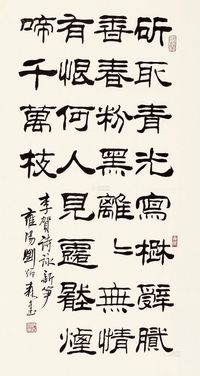 斫取青光寫楚辭膩
香春粉黑離〻無情
有恨何人見露壓煙
啼千萬枝
李賀詩詠新筍
雍陽劉炳森書